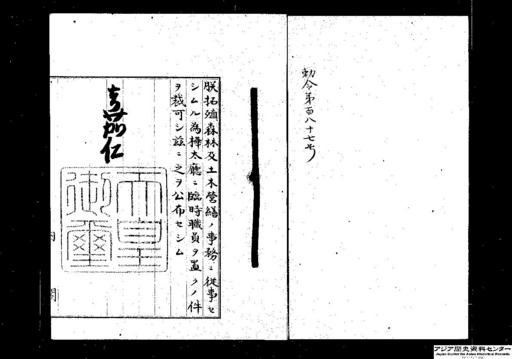 勅令第百八十七号
朕拓殖森林及土木営繕ノ事務ニ従事セ
シムル為樺太庁ニ臨時職員ヲ置クノ件
ヲ裁可シ茲ニ之ヲ公布セシム
嘉仁
天皇
御璽
内
閣
アジア歴史資料センター
Japan Center for Asian Historical Records